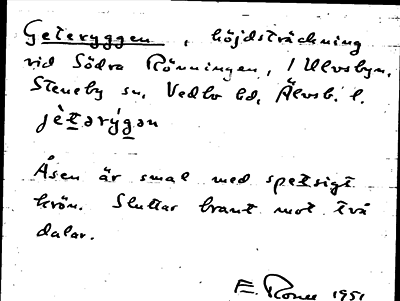 Geteryggen, höjdsträckning
vid Södra Rönningen, i Ulvsbyn,
Steneby sn, Vedbo hd, Älvsb. l.
jètərýgən
Åsen är smal med spetsigt
krön. Sluttar brant mot två
dalar.
E. 1951